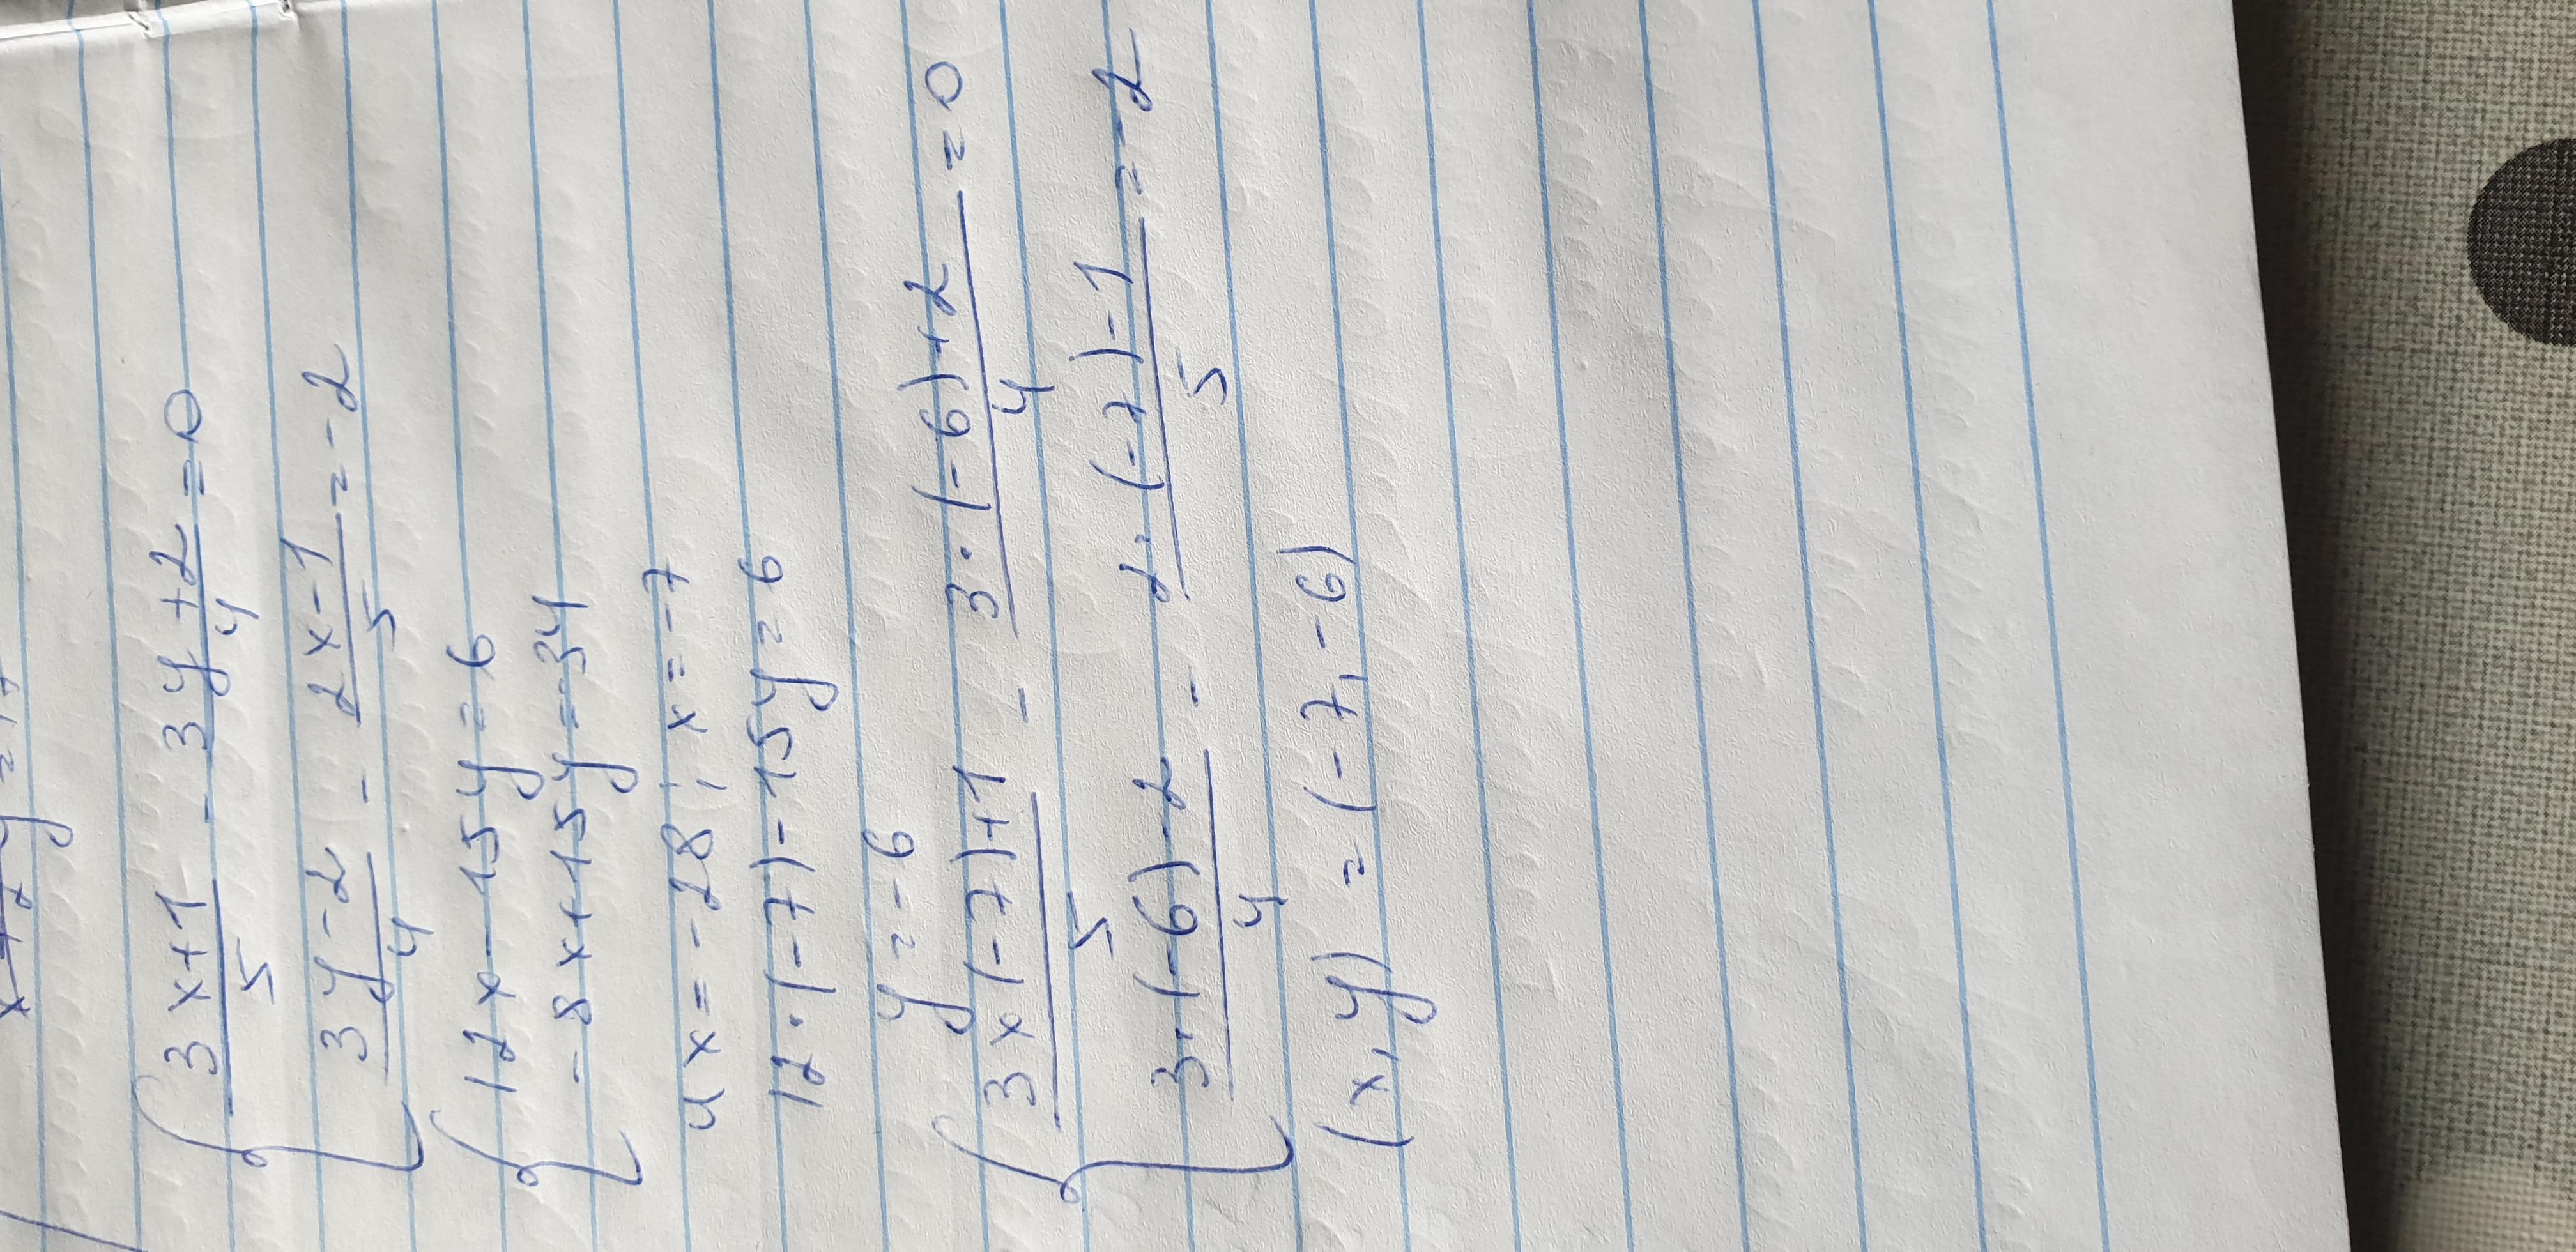 3x+1/5 - 3y+2/4 = 0
3y-2/4 - 2x-1/5 = -2
12x-15y=6
-8x+15y=-34
4x=-28; x=-7
12·(-7)-15y=6
y=-6
3x(-7)+1/5 - 3·(-6)+2/4 = 0
3·(-6)-2/4 - 2·(-7)-1/5 = -2
(x,y) = (-7,-6)